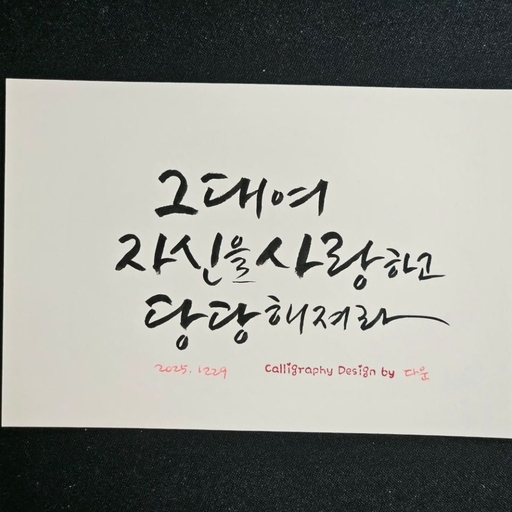 그대여
자신을 사랑하고
당당해져라
2025. 1229 Calligraphy Design by 다운